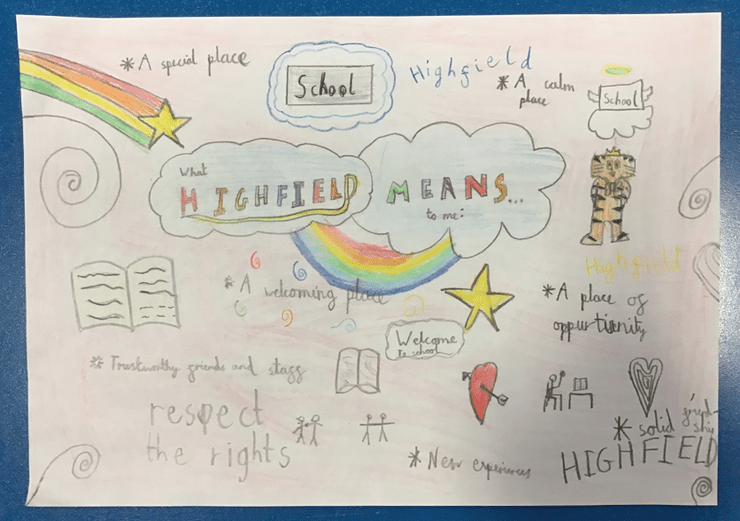 * A special place
School
Highfield
* A calm
place
School
What
HIGHFIELD MEANS...
to me:
Highfield
* A welcoming place
* A place of
oppurtiunity
Welcome
to school
* Trustworthy friends and staff
respect
the rights
* solid friend-
ship
* New experiences
HIGHFIELD